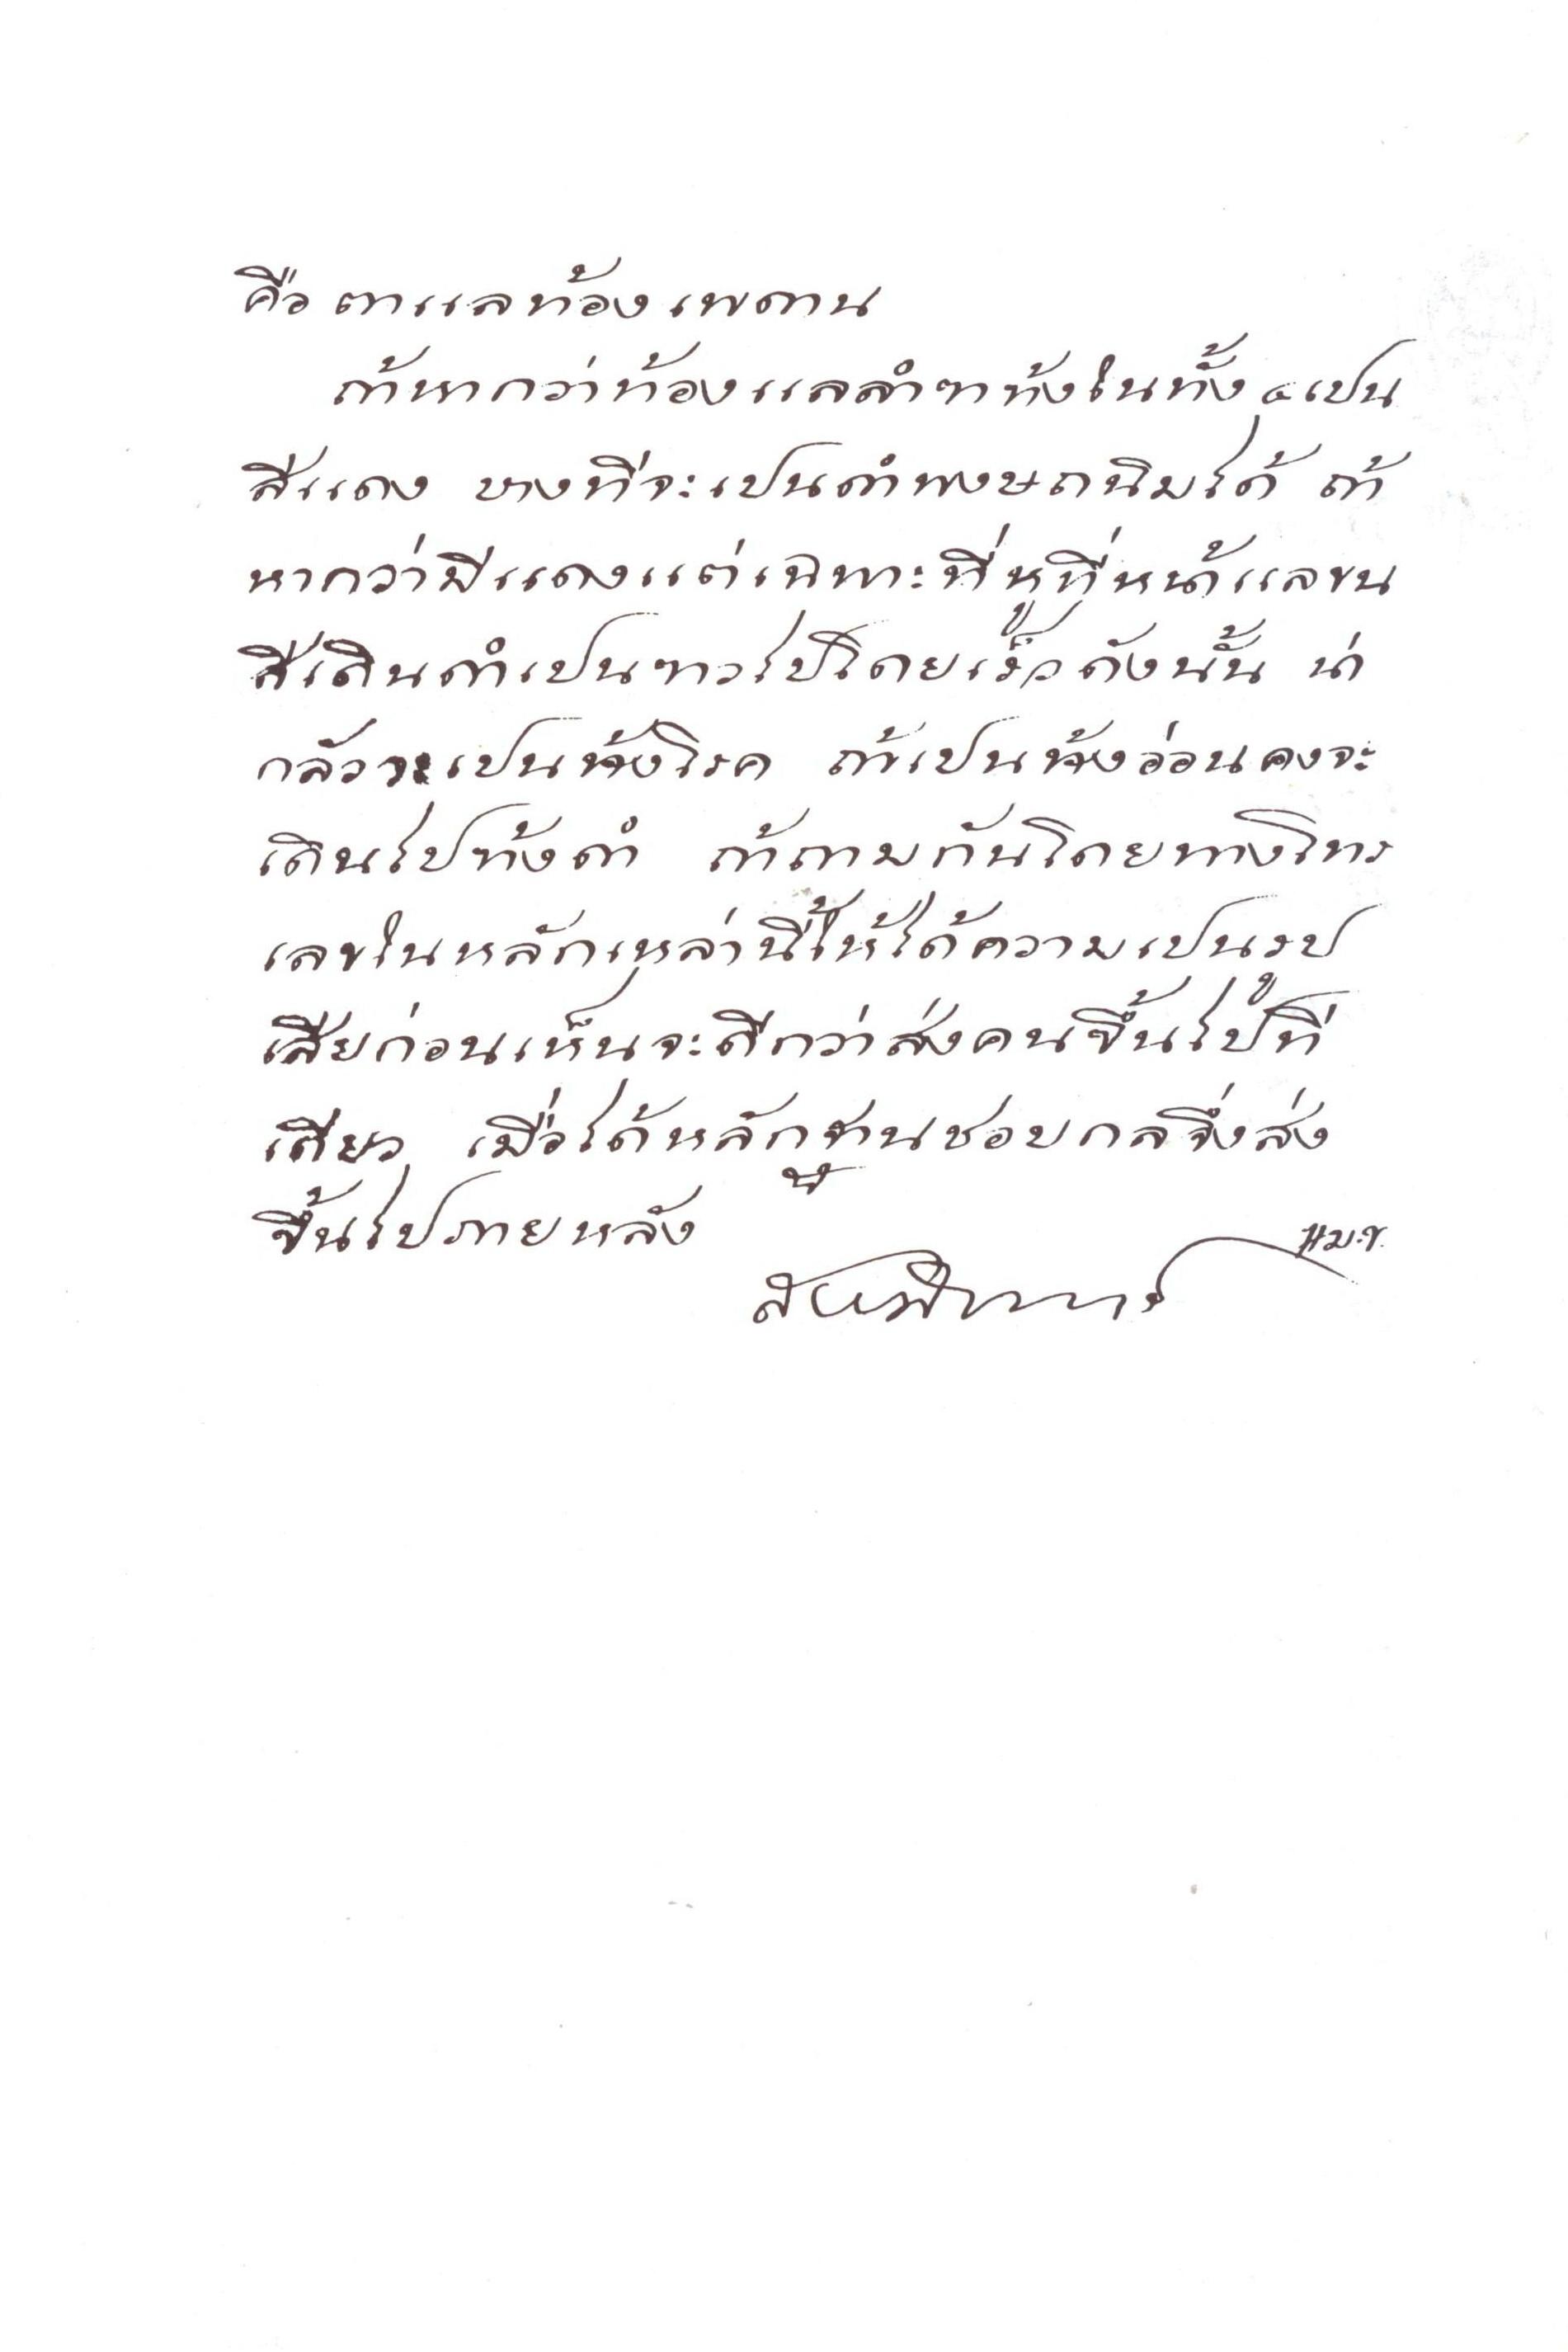 คือ ตาแลท้องเพดาน
ถ้าหากว่าท้องแลลำฃาข้างในทั้ง ๔ เปน
สีแดง บางทีจะเปนดำพงษถนิมได้ ถ้า
หากว่ามีแดงแต่เฉพาะที่หูที่หน้าแลขน
สีเดินดำเปนฃาวไปโดยเร็วดังนั้น น่า
กลัวจะเปนช้างโรค ถ้าเปนช้างอ่อนคงจะ
เดินไปข้างดำ ถ้าถามกันโดยทางโทร
เลขในหลักเหล่านี้ให้ได้ความเปนรูป
เสียก่อนเห็นจะดีกว่าส่งคนขึ้นไปที
เดียว เมื่อได้หลักฐานชอบกลจึ่งส่ง
ขึ้นไปภายหลัง
สยามินทร์